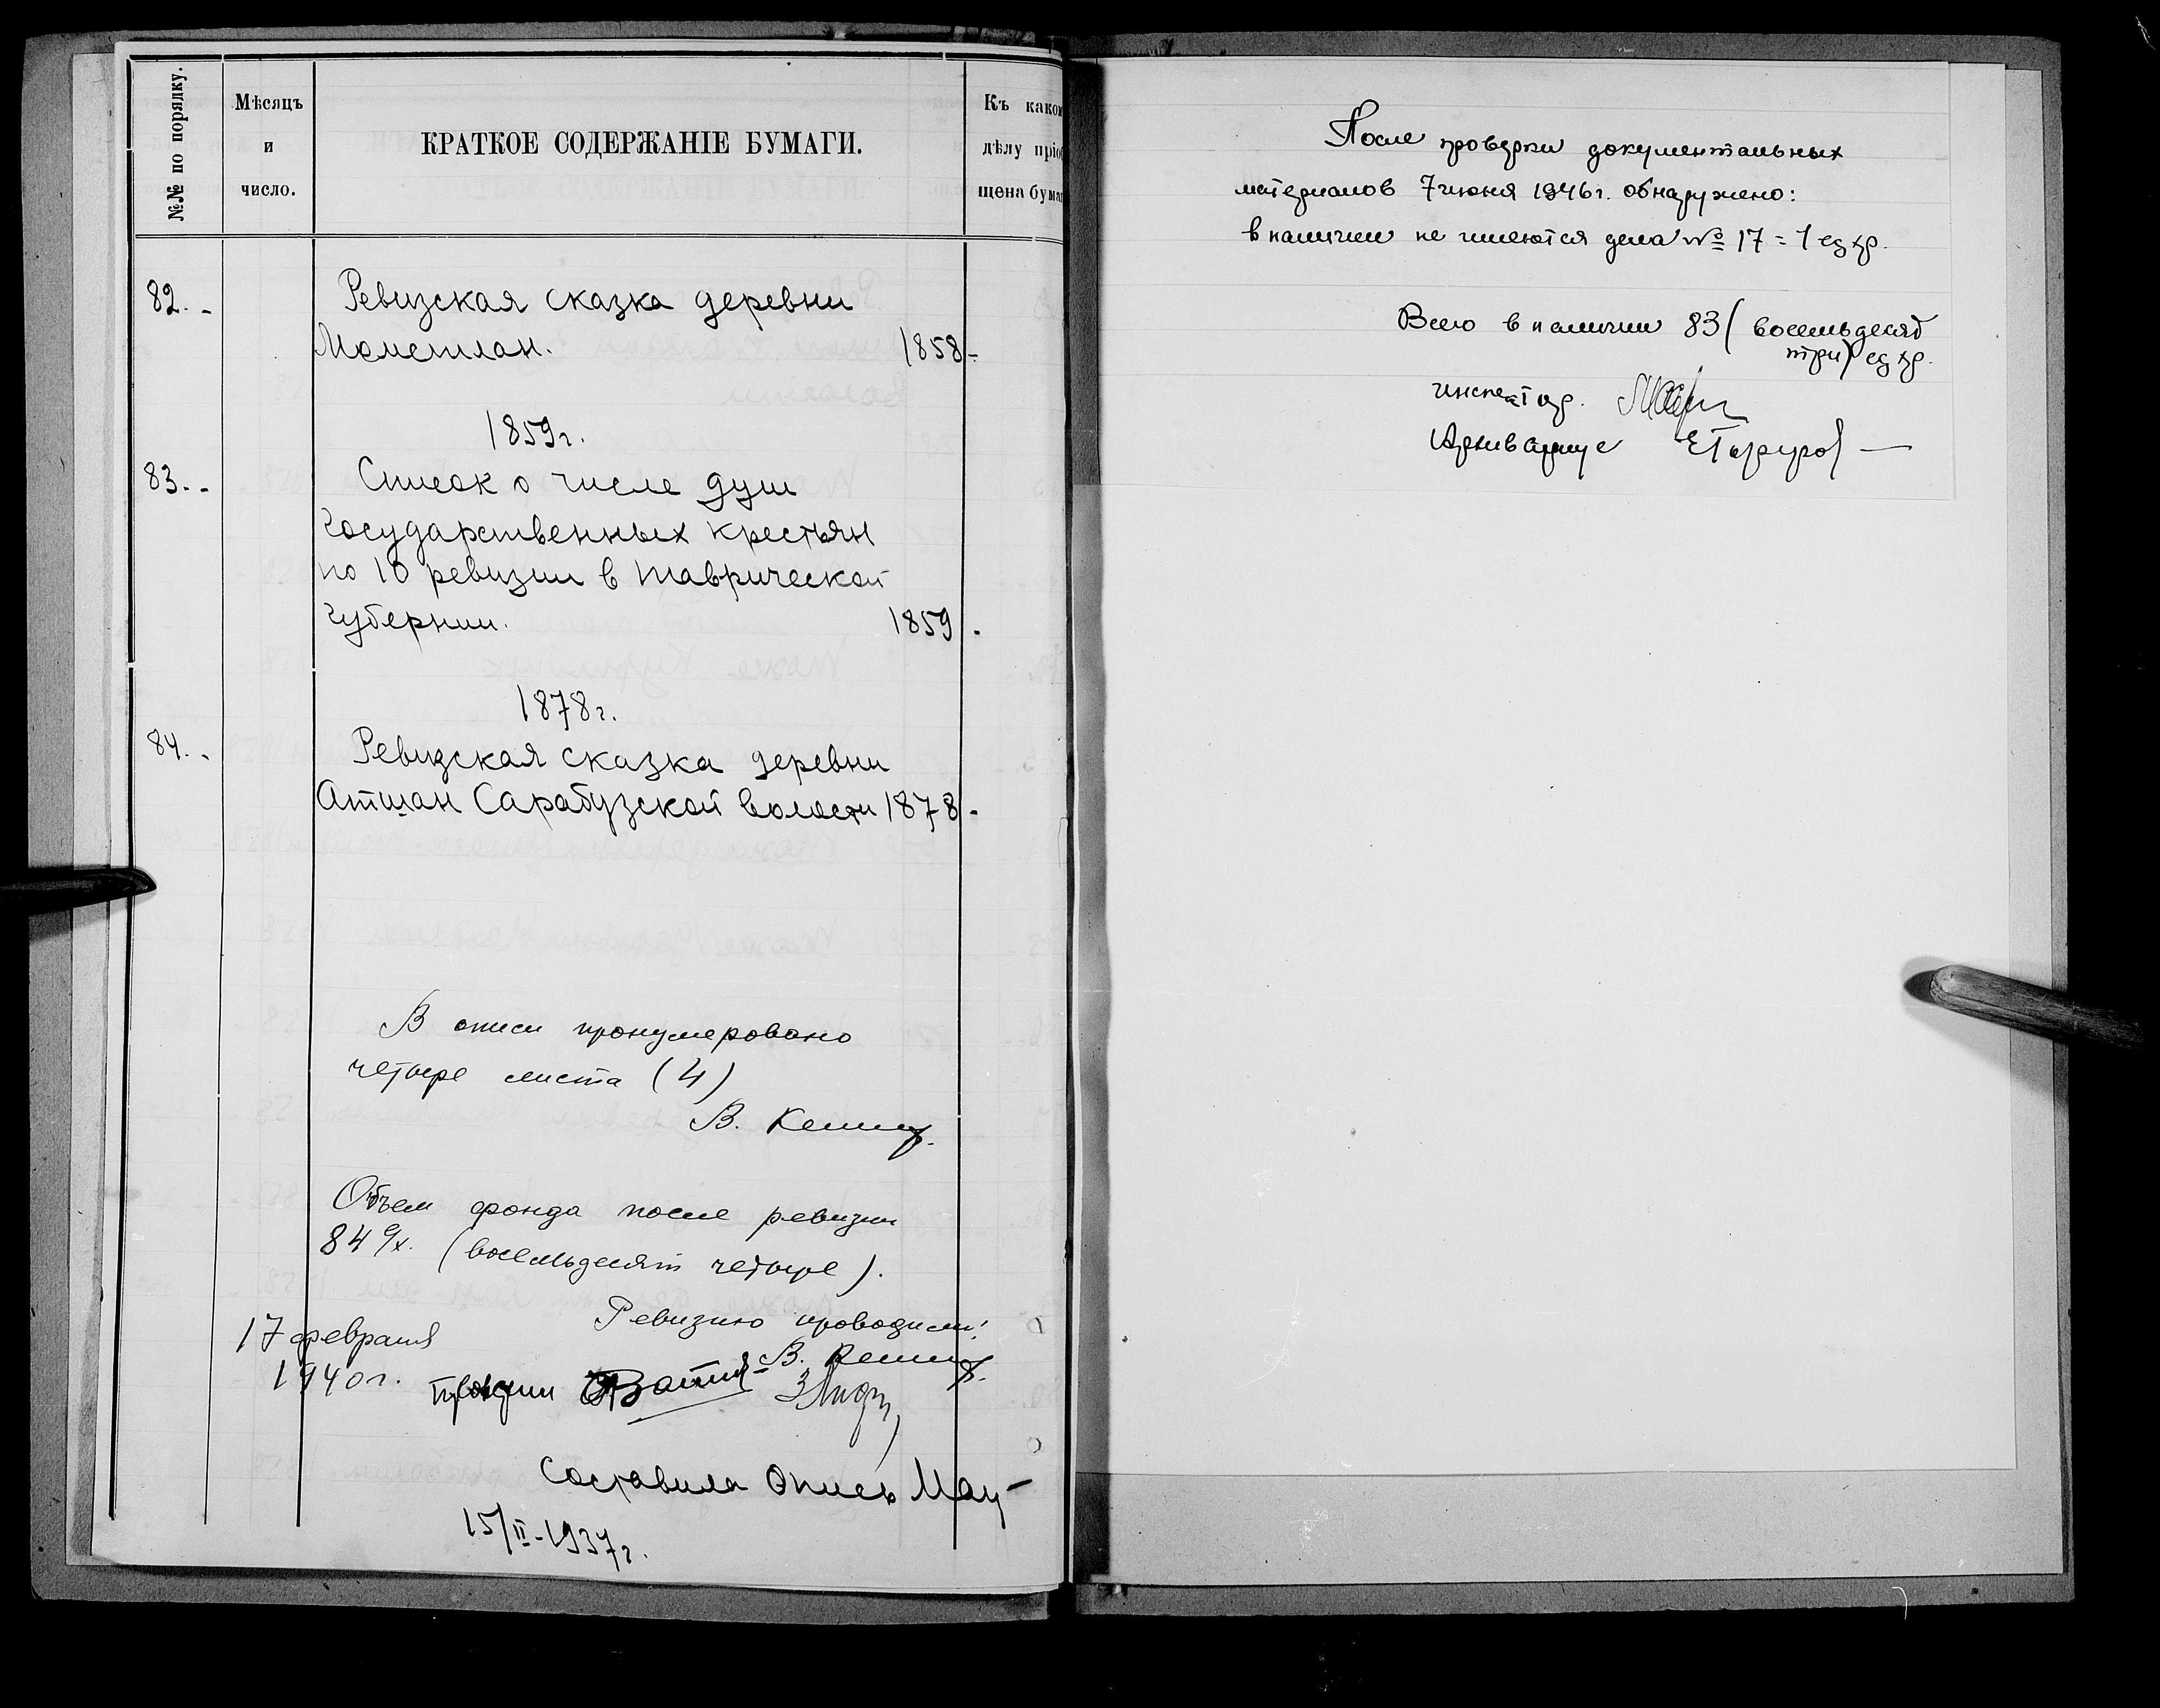 №№ по порядку.
Мѣсяцъ
и
число.
КРАТКОЕ СОДЕРЖАНІЕ БУМАГИ.
Къ како
дѣлу пріо
щена бума
82.-
Ревизская сказка деревни
1858-
1859г.
83.-
Список о числе душ
государственных крестьян
по 10 ревизии в Таврической
губернии. 1859.
1878г.
84.-
Ревизская сказка деревни
Атман Сарабузской волости 1878-
В описи пронумеровано
четыре листа (4)
В.
Объем фонда после ревизии
84 (восемьдесят четыре).
Ревизию проводили:
17 февраля
В.
1940г.
Составила Опись
15/II-1937г.
После проверки документальных
материалов 7 июня 1946г. обнаружено:
в наличии не имеются дела № 17 = 1 ед хр.
Всего в наличии 83 (восемьдесят
три) ед хр.
инспектор.